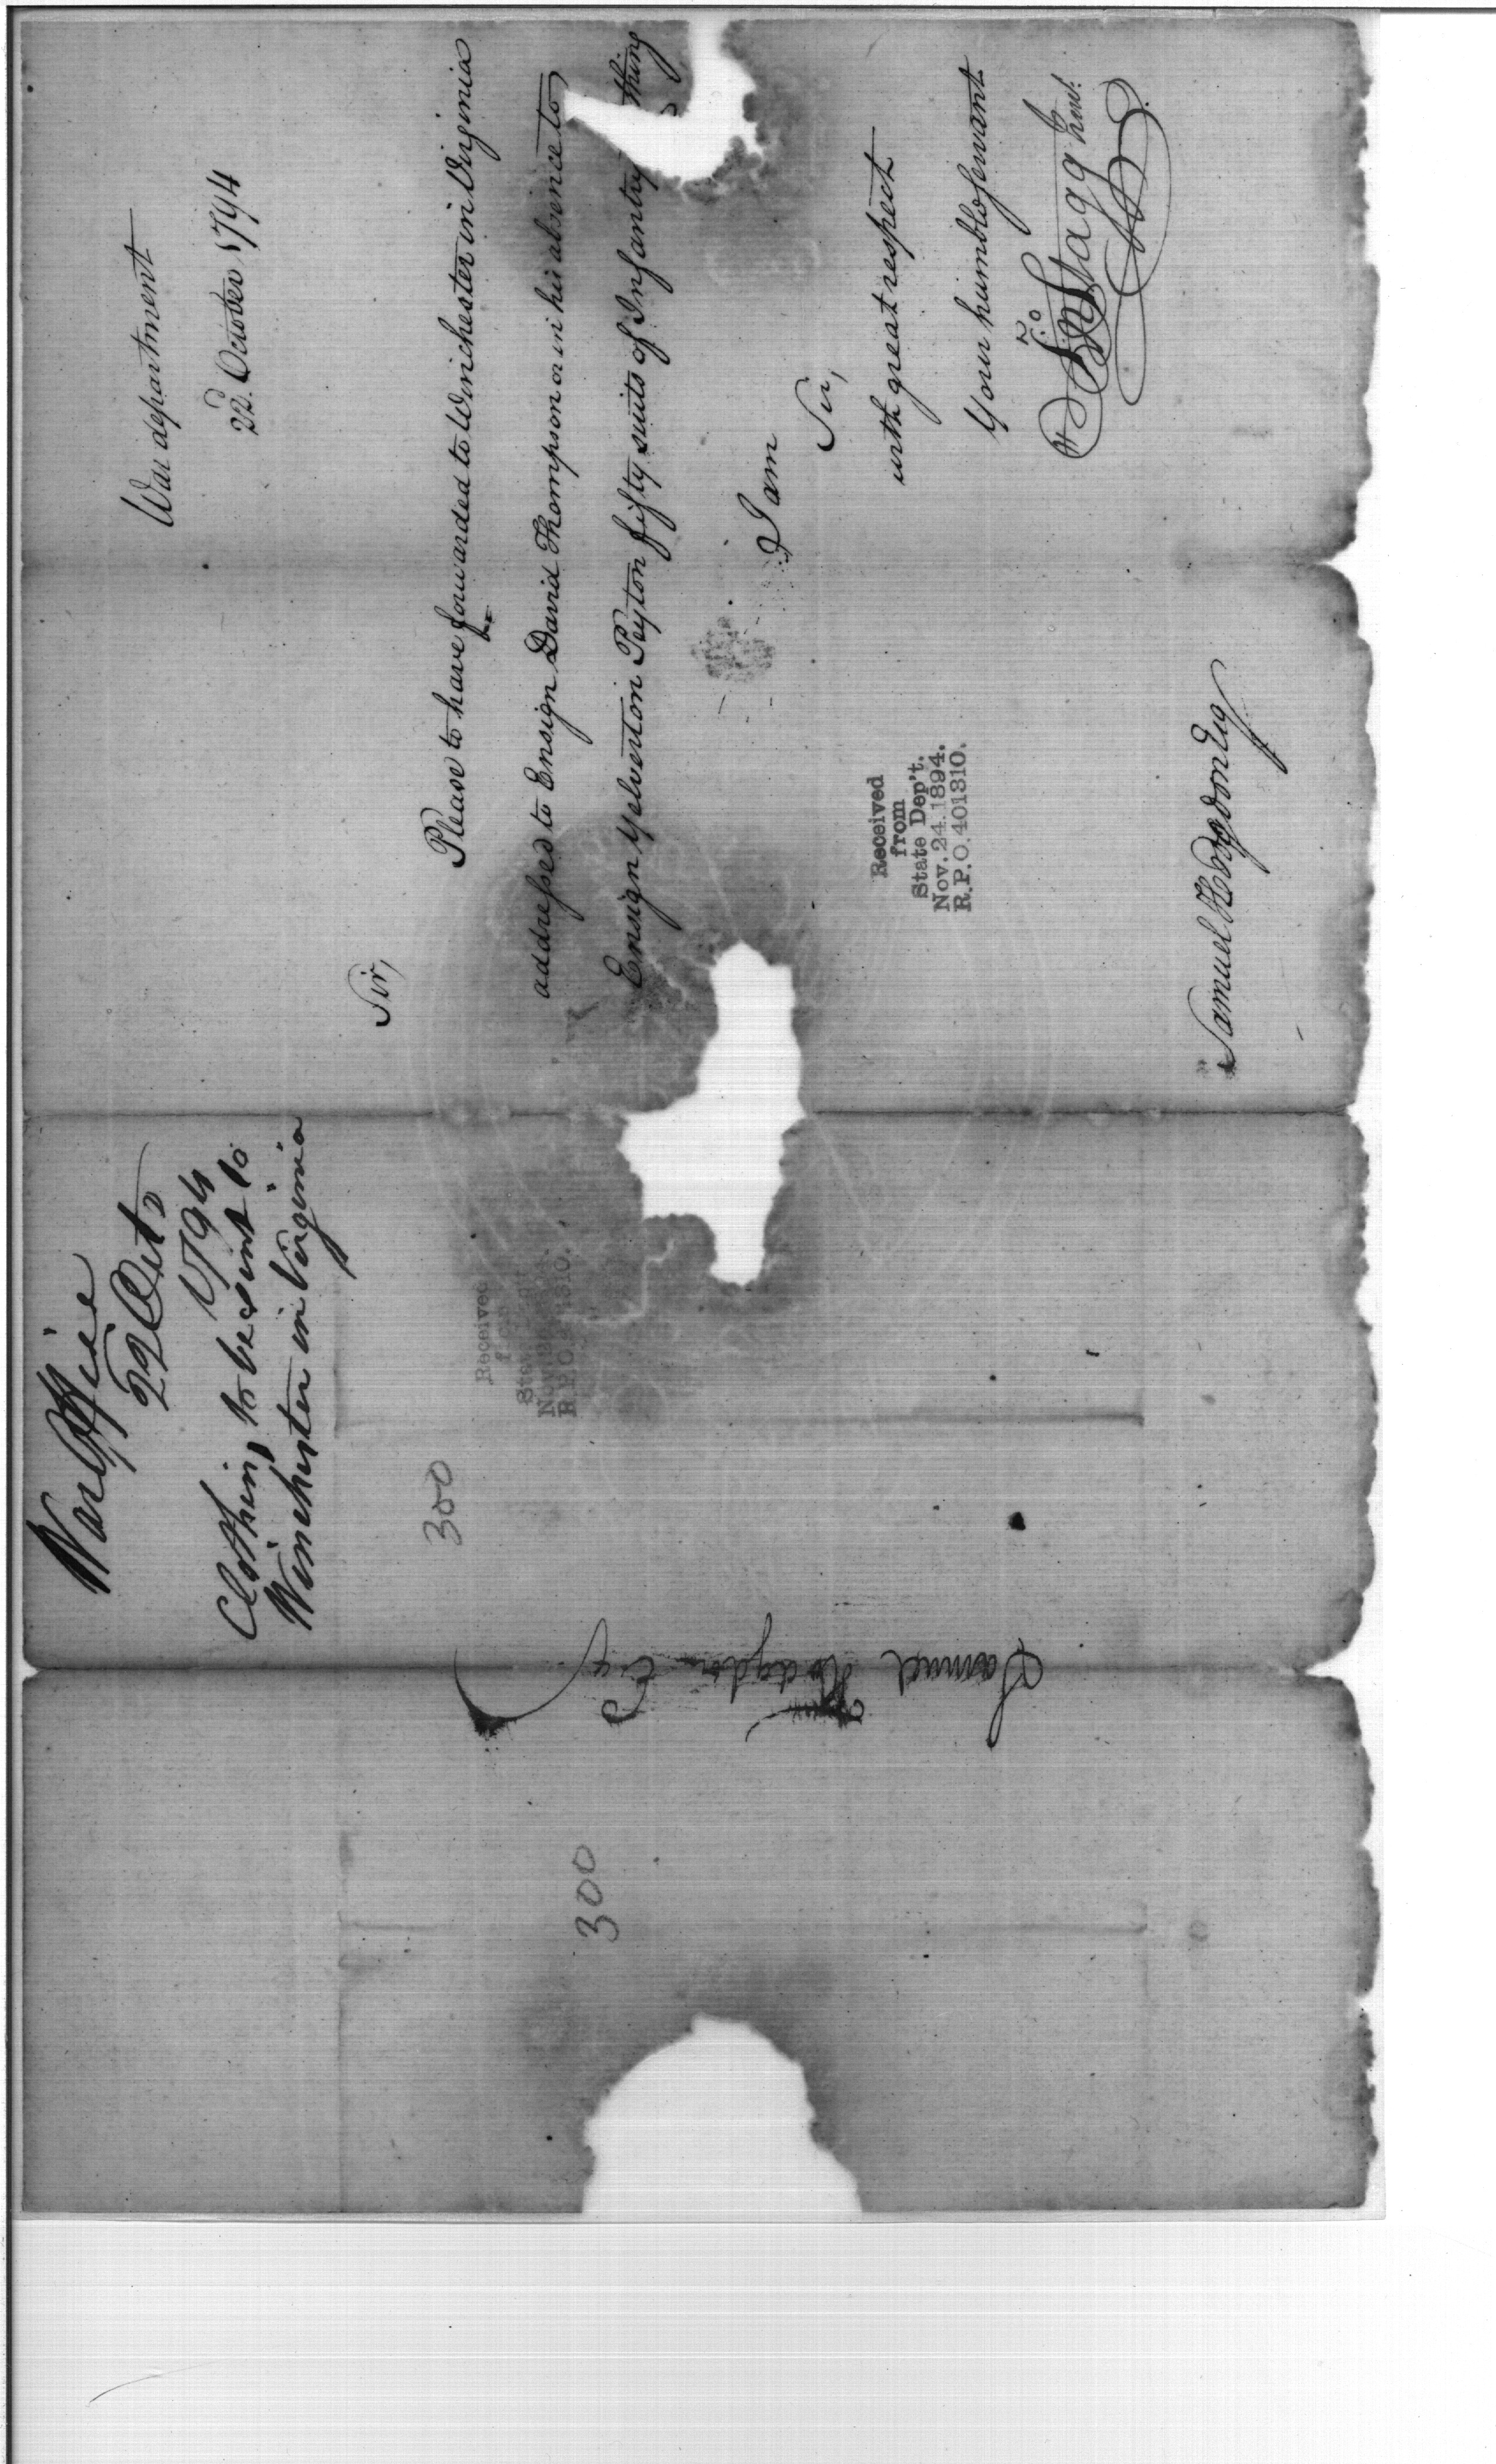 War department
22. October 1794
Sir,
Please to have forwarded to Winchester in Virginia
addressed to Ensign David Thompson or in his absence to
Ensign Yelverton Peyton fifty suits of Infantry thing
I am
Sir,
with great respect
Your humble Servant
Jno Stagg Junr.
Samuel Hodgdon Esq
Received
from
State Dep't.
Nov. 24. 1894.
R.P.O. 401310.
War Office
22 Octo
1794
Clothing to be sent to
Winchester in Virginia
300
Received
from
Samuel Hodgdon Esq
300